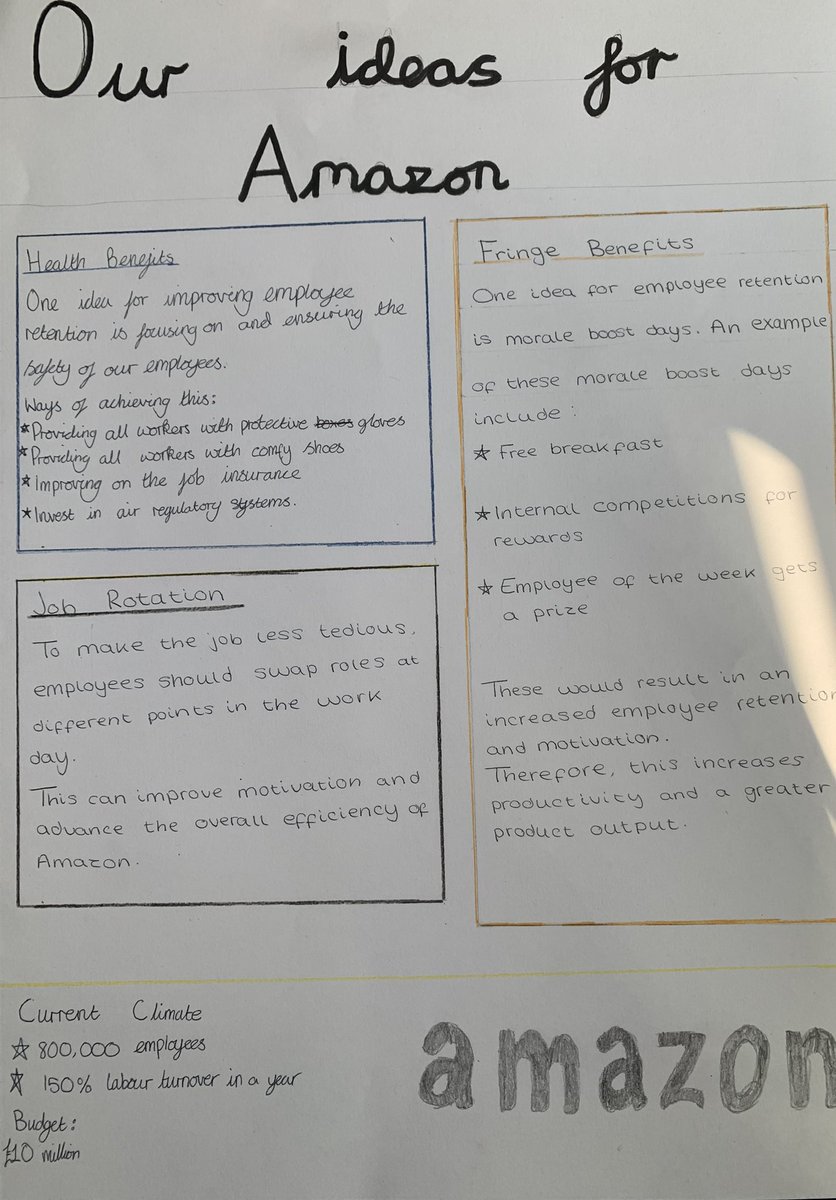 Our ideas for
Amazon
Health Benefits
One idea for improving employee
retention is focusing on and ensuring the
safety of our employees.
Ways of achieving this:
*Providing all workers with protective boxes gloves
*Providing all workers with comfy shoes
*Improving on the job insurance
*Invest in air regulatory systems.
Job Rotation
To make the job less tedious,
employees should swap roles at
different points in the work
day.
This can improve motivation and
advance the overall efficiency of
Amazon.
Fringe Benefits
One idea for employee retention
is morale boost days. An example
of these morale boost days
include:
☆ Free breakfast
☆ Internal competitions for
rewards
☆ Employee of the week gets
a prize
These would result in an
increased employee retention
and motivation.
Therefore, this increases
productivity and a greater
product output.
Current Climate
☆ 800,000 employees
☆ 150% labour turnover in a year
Budget:
£10 million
amazon